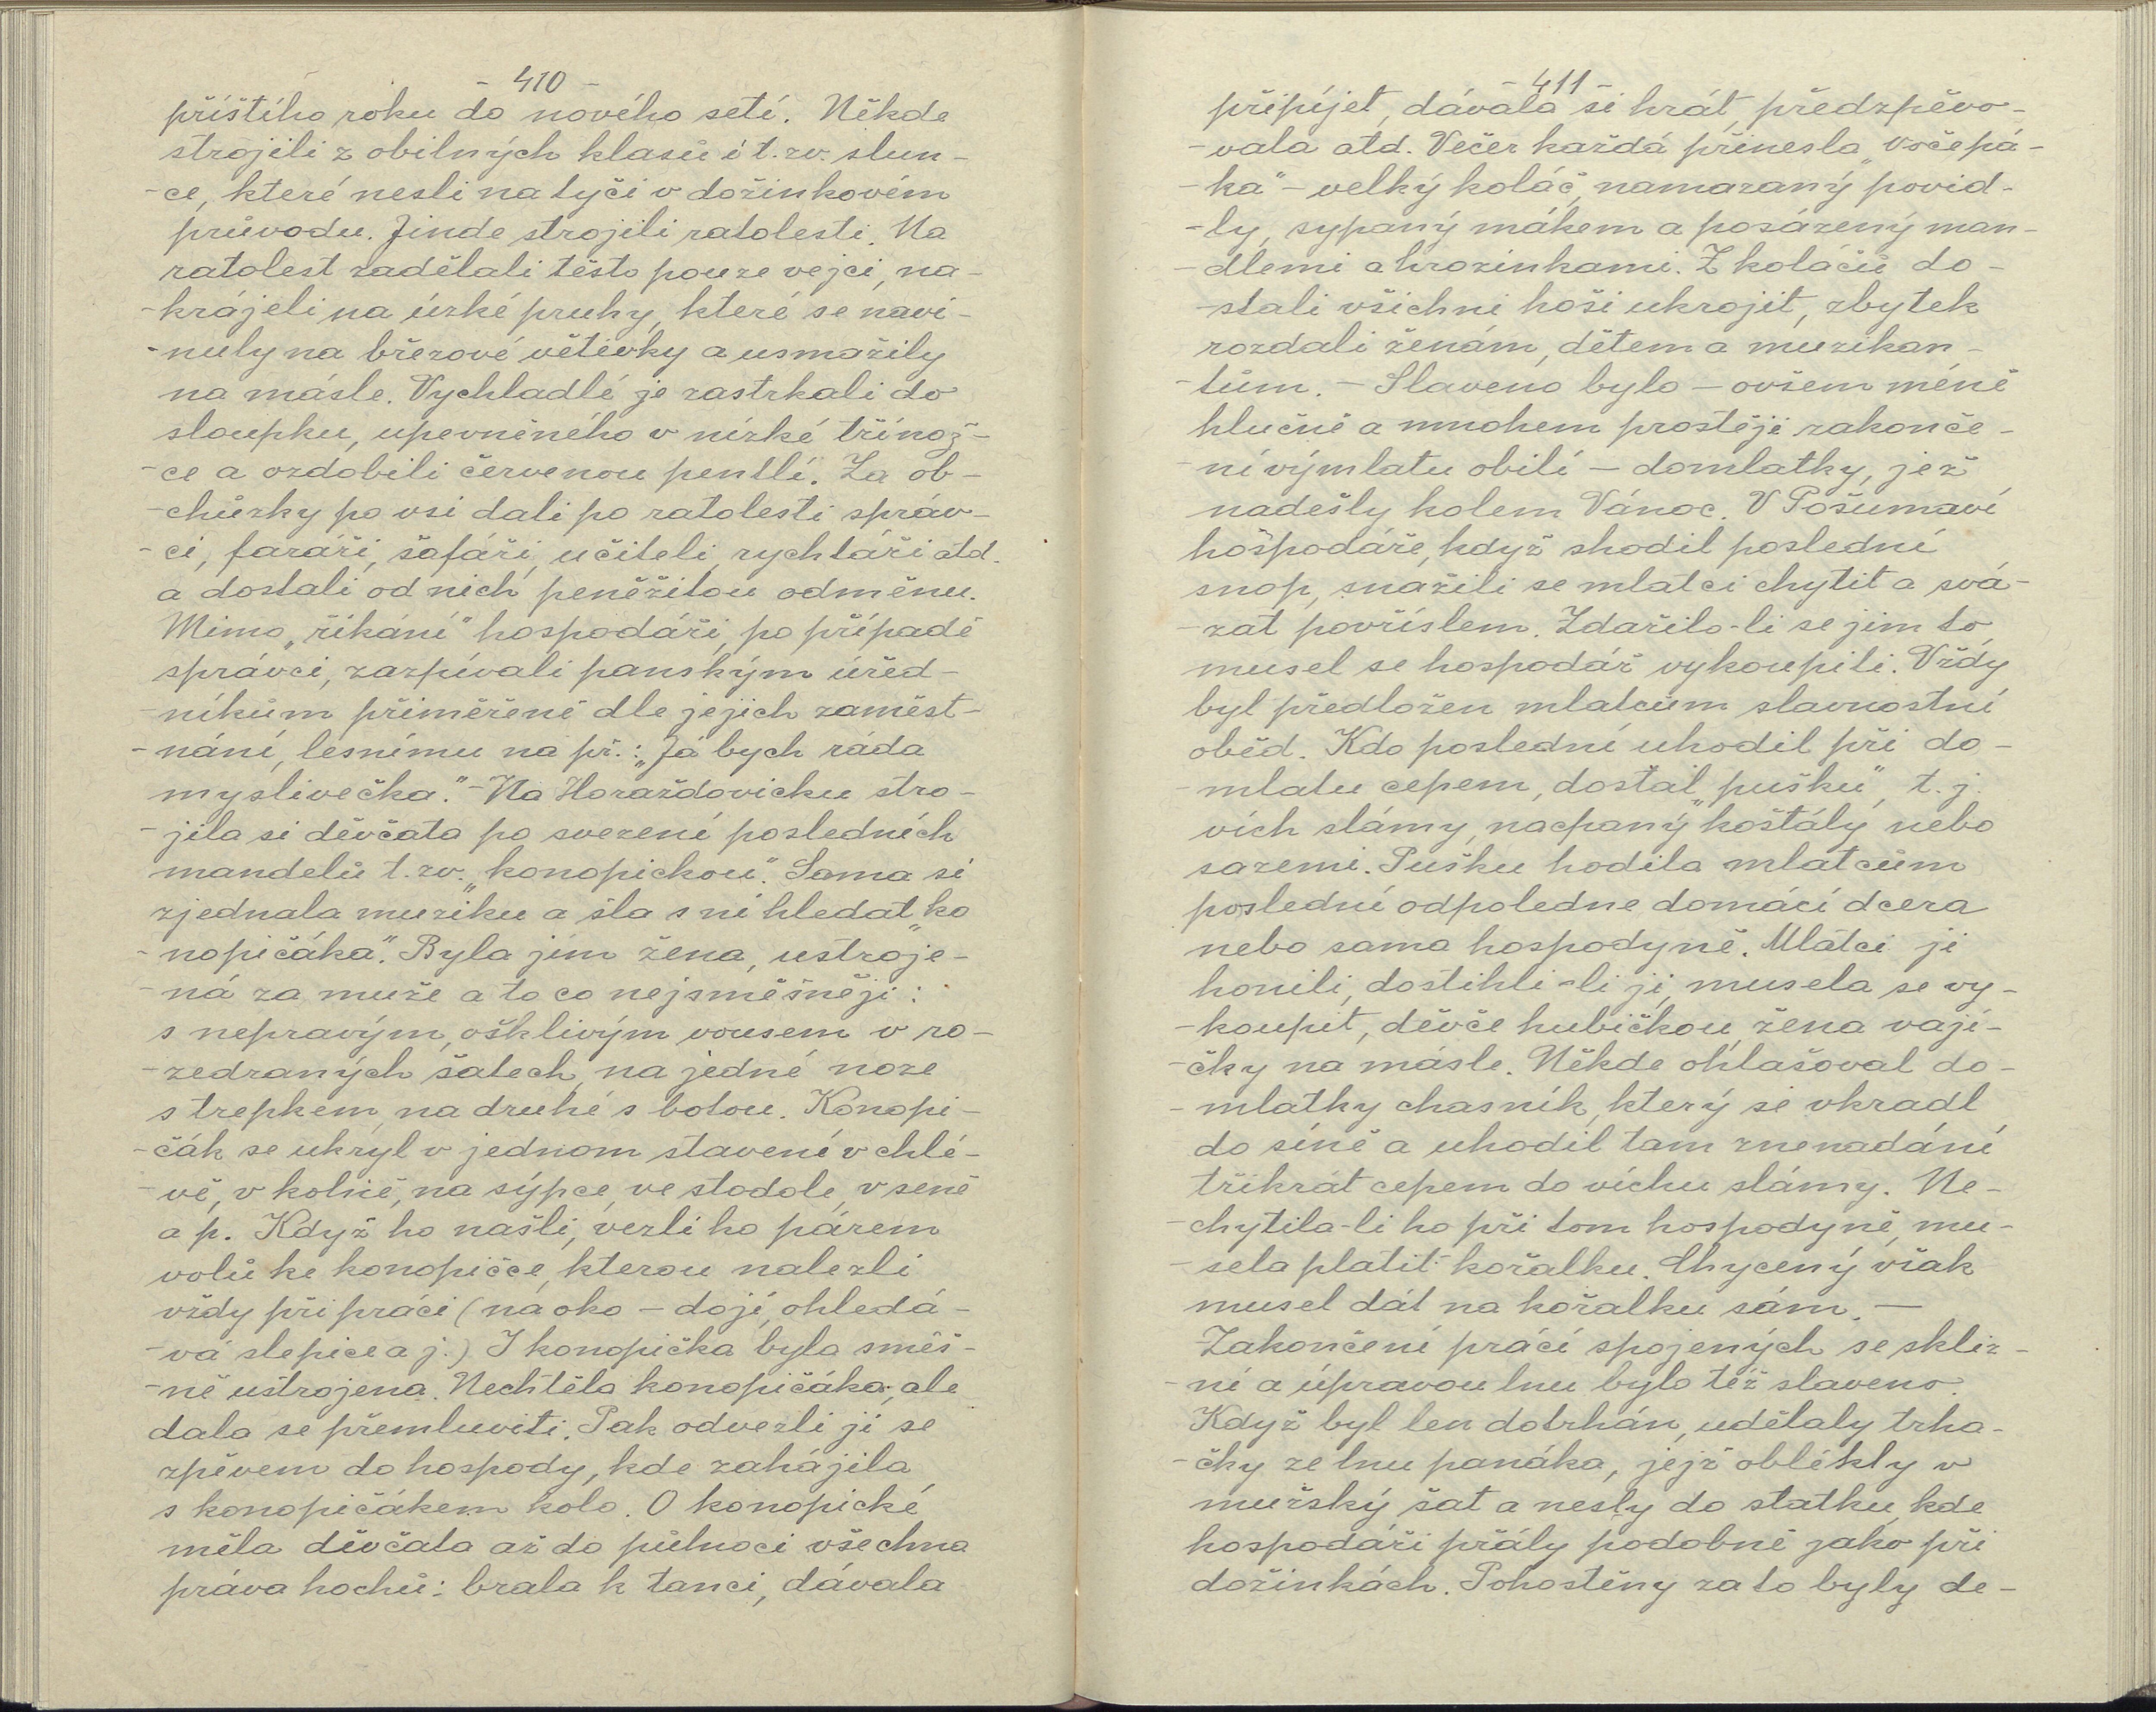 - 410 -
příštího roku do nového setí. Někde
strojili z obilných klasů i t. zv. slun-
-ce, které nesli na tyči v dožinkovém
průvodu. Jinde strojili ratolesti. Na
ratolest zadělali těsto pouze vejci, na-
-krájeli na úzké pruhy, které se navi-
-nuly na březové větévky a usmažily
na másle. Vychladlé je zastrkali do
sloupku, upevněného v nízké třínož-
-ce a ozdobili červenou pentlí. Za ob-
-chůzky po vsi dali po ratolesti správ-
-ci, faráři, šafáři, učiteli, rychtáři atd.
a dostali od nich peněžitou odměnu.
Mimo „říkání" hospodáři, po případě
správci, zazpívali panským úřed-
-níkům přiměřeně dle jejich zaměst-
-nání, lesnímu na př.: „Já bych ráda
myslivečka." - Na Horažďovicku stro-
-jila si děvčata po svezení posledních
mandelů t. zv. „konopickou". Sama si
zjednala muziku a šla s ní hledat „ko
-nopičáka". Byla jím žena, ustroje-
-ná za muže a to co nejsměšněji:
s nepravým, ošklivým vousem v ro-
-zedraných šatech, na jedné noze
s trepkem, na druhé s botou. Konopi-
-čák se ukryl v jednom stavení v chlé-
-vě, v kolně, na sýpce, ve stodole, v seně
a p. Když ho našli, vezli ho párem
volů ke konopičce, kterou nalezli
vždy při práci (na oko - dojí, ohledá-
-vá slepice a j.) I konopička byla směš-
-ně ustrojena. Nechtěla konopičáka, ale
dala se přemluviti. Pak odvezli ji se
zpěvem do hospody, kde zahájila
s konopičákem kolo. O konopické
měla děvčata až do půlnoci všechna
práva hochů: brala k tanci, dávala
- 411 -
připíjet, dávala si hrát, předzpěvo-
-vala atd. Večer každá přinesla „vočepá-
-ka" - velký koláč, namazaný povid-
-ly, sypaný mákem a posázený man-
-dlemi a hrozinkami. Z koláčů do-
-stali všichni hoši ukrojit, zbytek
rozdali ženám, dětem a muzikan-
-tům. - Slaveno bylo - ovšem méně
hlučně a mnohem prostěji zakonče-
-ní výmlatu obilí - domlatky, jež
nadešly kolem Vánoc. V Pošumaví
hospodáře, když shodil poslední
snop, snažili se mlatci chytit a svá-
-zat povříslem. Zdařilo-li se jim to,
musel se hospodář vykoupiti. Vždy
byl předložen mlatcům slavnostní
oběd. Kdo poslední uhodil při do-
-mlatu cepem, dostal „pušku", t. j.
vích slámy, nacpaný košťály nebo
sazemi. Pušku hodila mlatcům
poslední odpoledne domácí dcera
nebo sama hospodyně. Mlatci ji
honili, dostihli-li ji, musela se vy-
-koupit, děvče hubičkou, žena vají-
-čky na másle. Někde ohlašoval do-
-mlatky chasník, který se vkradl
do síně a uhodil tam znenadání
třikrát cepem do víchu slámy. Ne-
-chytila-li ho při tom hospodyně, mu-
-sela platit kořalku. Chycený však
musel dát na kořalku sám. -
Zakončení prácí spojených se skliz-
-ní a úpravou lnu bylo též slaveno.
Když byl len dotrhán, udělaly trha-
-čky ze lnu panáka, jejž oblékly v
mužský šat a nesly do statku, kde
hospodáři přály podobně jako při
dožinkách. Pohostěny za to byly de-